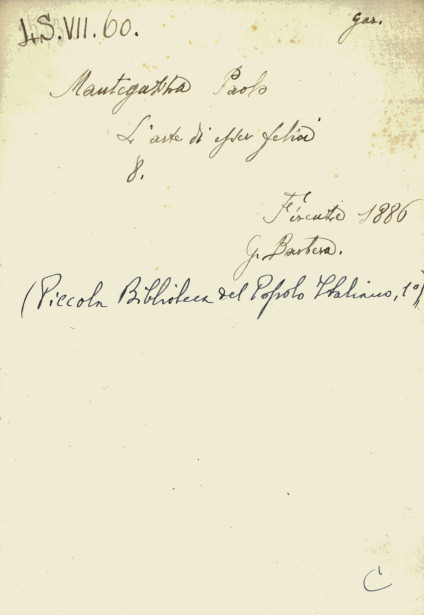 4.S.VII.60.
gar.
Mantegazza Paolo
L'arte di esser felici
8.
Firenze 1886
G. Barbera.
(Piccola Biblioteca del Popolo Italiano, 1°)
C